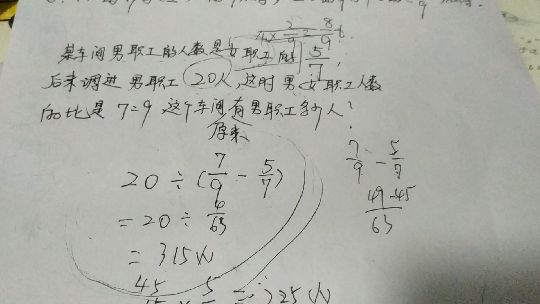 4× 2/9 = 8/9 t.
某车间男职工的人数是女职工的 5/7,
后来调进男职工20人,这时男女职工人数
的比是7:9 这个车间有男职工多少人?
原来
20÷(7/9 - 5/7)
=20÷ 4/63
=315(人)
7/9 - 5/7
49-45/63